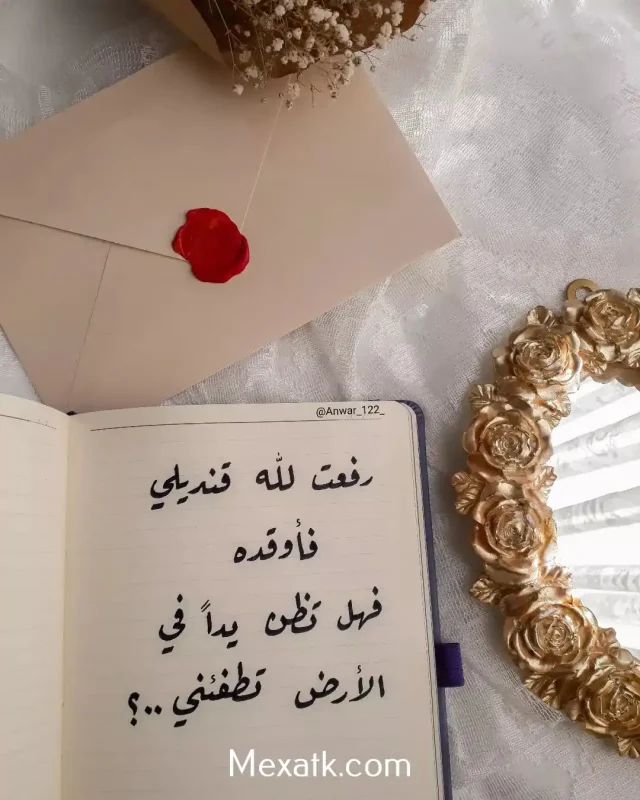 @Anwar_122_
رفعت لله قنديلي
فأوقده
فهل تظن يداً في
الأرض تطفئني..؟
Mexatk.com